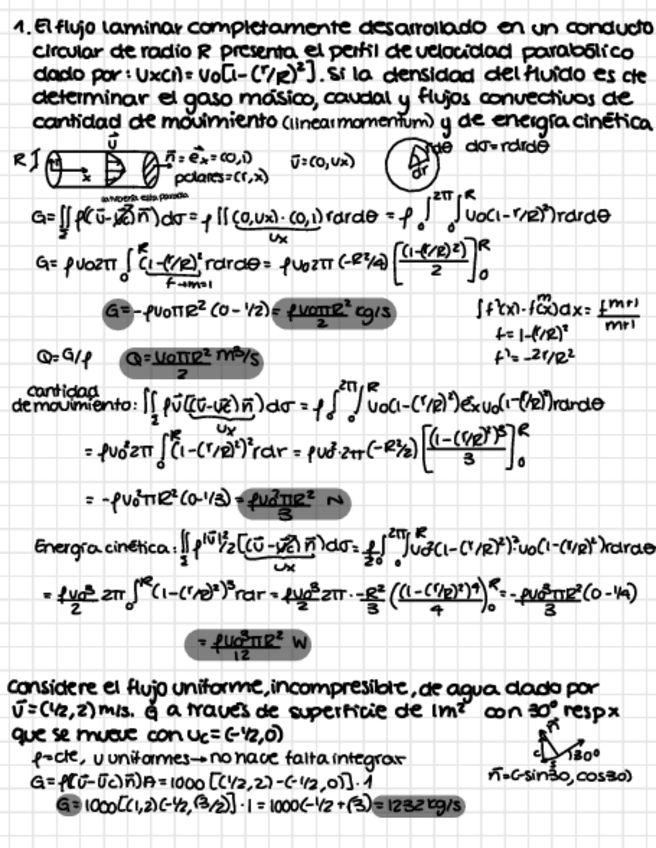 1. El flujo laminar completamente desarrollado en un conducto
circular de radio R presenta el perfil de velocidad parabólico
dado por: Ux(r) = U0[1-(r/R)²]. Si la densidad del fluido es cte
determinar el gaso másico, caudal y flujos convectivos de
cantidad de movimiento (linear momentum) y de energía cinética
R x n̄ = e̅x = (0,1) ū = (0, Ux) dθ dr dσ = rdrdθ
polares = (r,x)
G = ∬ ρ(ū-u̅c)n̄)dσ = ρ∬(0,Ux)·(0,1) rdrdθ = ρ∫₀^2π ∫₀^R U0(1-r/R)²)rdrdθ
Ux
G = ρU02π ∫₀^R (1-(r/R)² rdrdθ = ρU02π (-R²/4) [(1-(r/R)²)/2]₀^R
f→m=1
G = -ρU0πR² (0-1/2) = ρU0πR²/2 kg/s
∫f'(x)·f(x)^m dx = f^m+1/m+1
f = 1-(r/R)²
f' = -2r/R²
Q = G/ρ Q = U0πR²/2 m³/s
cantidad
de movimiento: ∬ ρū[(ū-u̅c)n̄)dσ = ρ∫₀^2π ∫₀^R U0(1-(r/R)²)e̅x U0(1-(r/R)²)rdrdθ
Ux
= ρU0²2π ∫₀^R (1-(r/R)²)² rdr = ρU0²·2π(-R²/2) [(1-(r/R)²)³/3]₀^R
= -ρU0²πR² (0-1/3) = ρU0²πR²/3 N
Energía cinética: ∬ ρ|ū|²/2 [(ū-u̅c)n̄)dσ = ρ/2 ∫₀^2π ∫₀^R U0²(1-(r/R)²)²·U0(1-(r/R)²)rdrdθ
Ux
= ρU0³/2 2π ∫₀^R (1-(r/R)²)³ rdr = ρU0³/2 2π · -R²/3 ((1-(r/R)²)⁴/4)₀^R = -ρU0³πR²/3 (0-1/4)
= ρU0³πR²/12 W
Considere el flujo uniforme, incompresible, de agua dado por
ū = (1/2, 2) m/s. G a través de superficie de 1m² con 30° resp x
que se mueve con uc = (-1/2, 0)
ρ = cte, u uniformes → no hace falta integrar
n̄ 30°
G = ρ(ū-u̅c)n̄)A = 1000 [(1/2,2)-(-1/2,0)]·1
n̄ = (-sin30, cos30)
G = 1000[(1,2)(-1/2,√3/2)]·1 = 1000(-1/2+√3) = 1232 kg/s